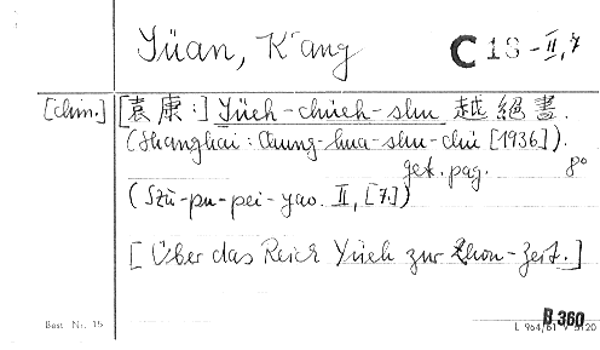 Yüan, K'ang
C 13 - II, 7
[chin.] [袁康:] Yüeh-chüeh-shu 越絕書.
(Shanghai: Chung-hua-shu-chü [1936]).
get. pag. 8°
(Szŭ-pu-pei-yao. II, [7.])
[Über das Reich Yüeh zur Zhou-Zeit.]
B 360
Best. Nr. 15